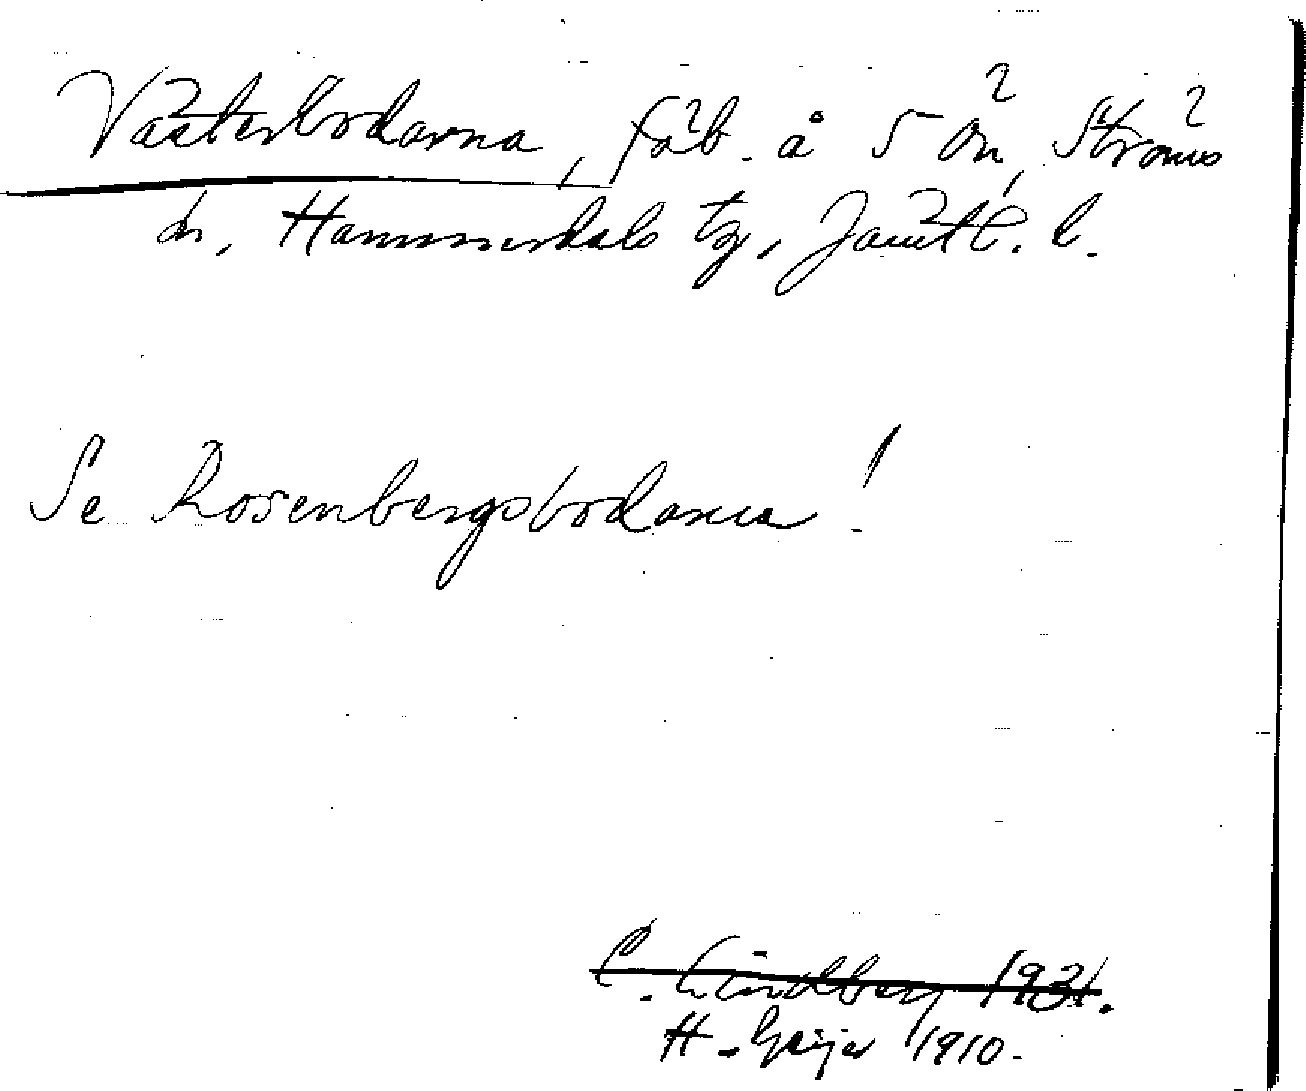 Västerbodarna, fäb. å 5 ön, Ströms
sn, Hammerdals tg, Jämtl. l.
Se Rosenbergsbodarna!
C. Lindberg 1931.
H. Geijer 1910.